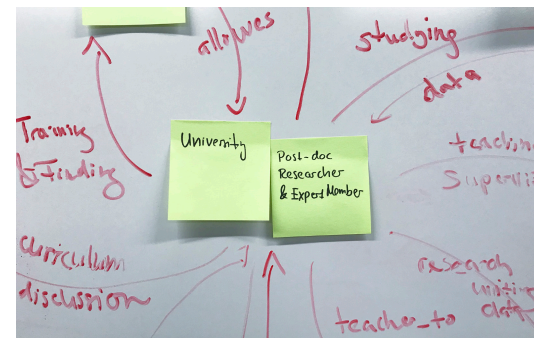 allows
studying
data
Training
& Finding
University
Post-doc
Researcher
& Expert Member
curriculum
discussion
research
writing
data
teacher_to